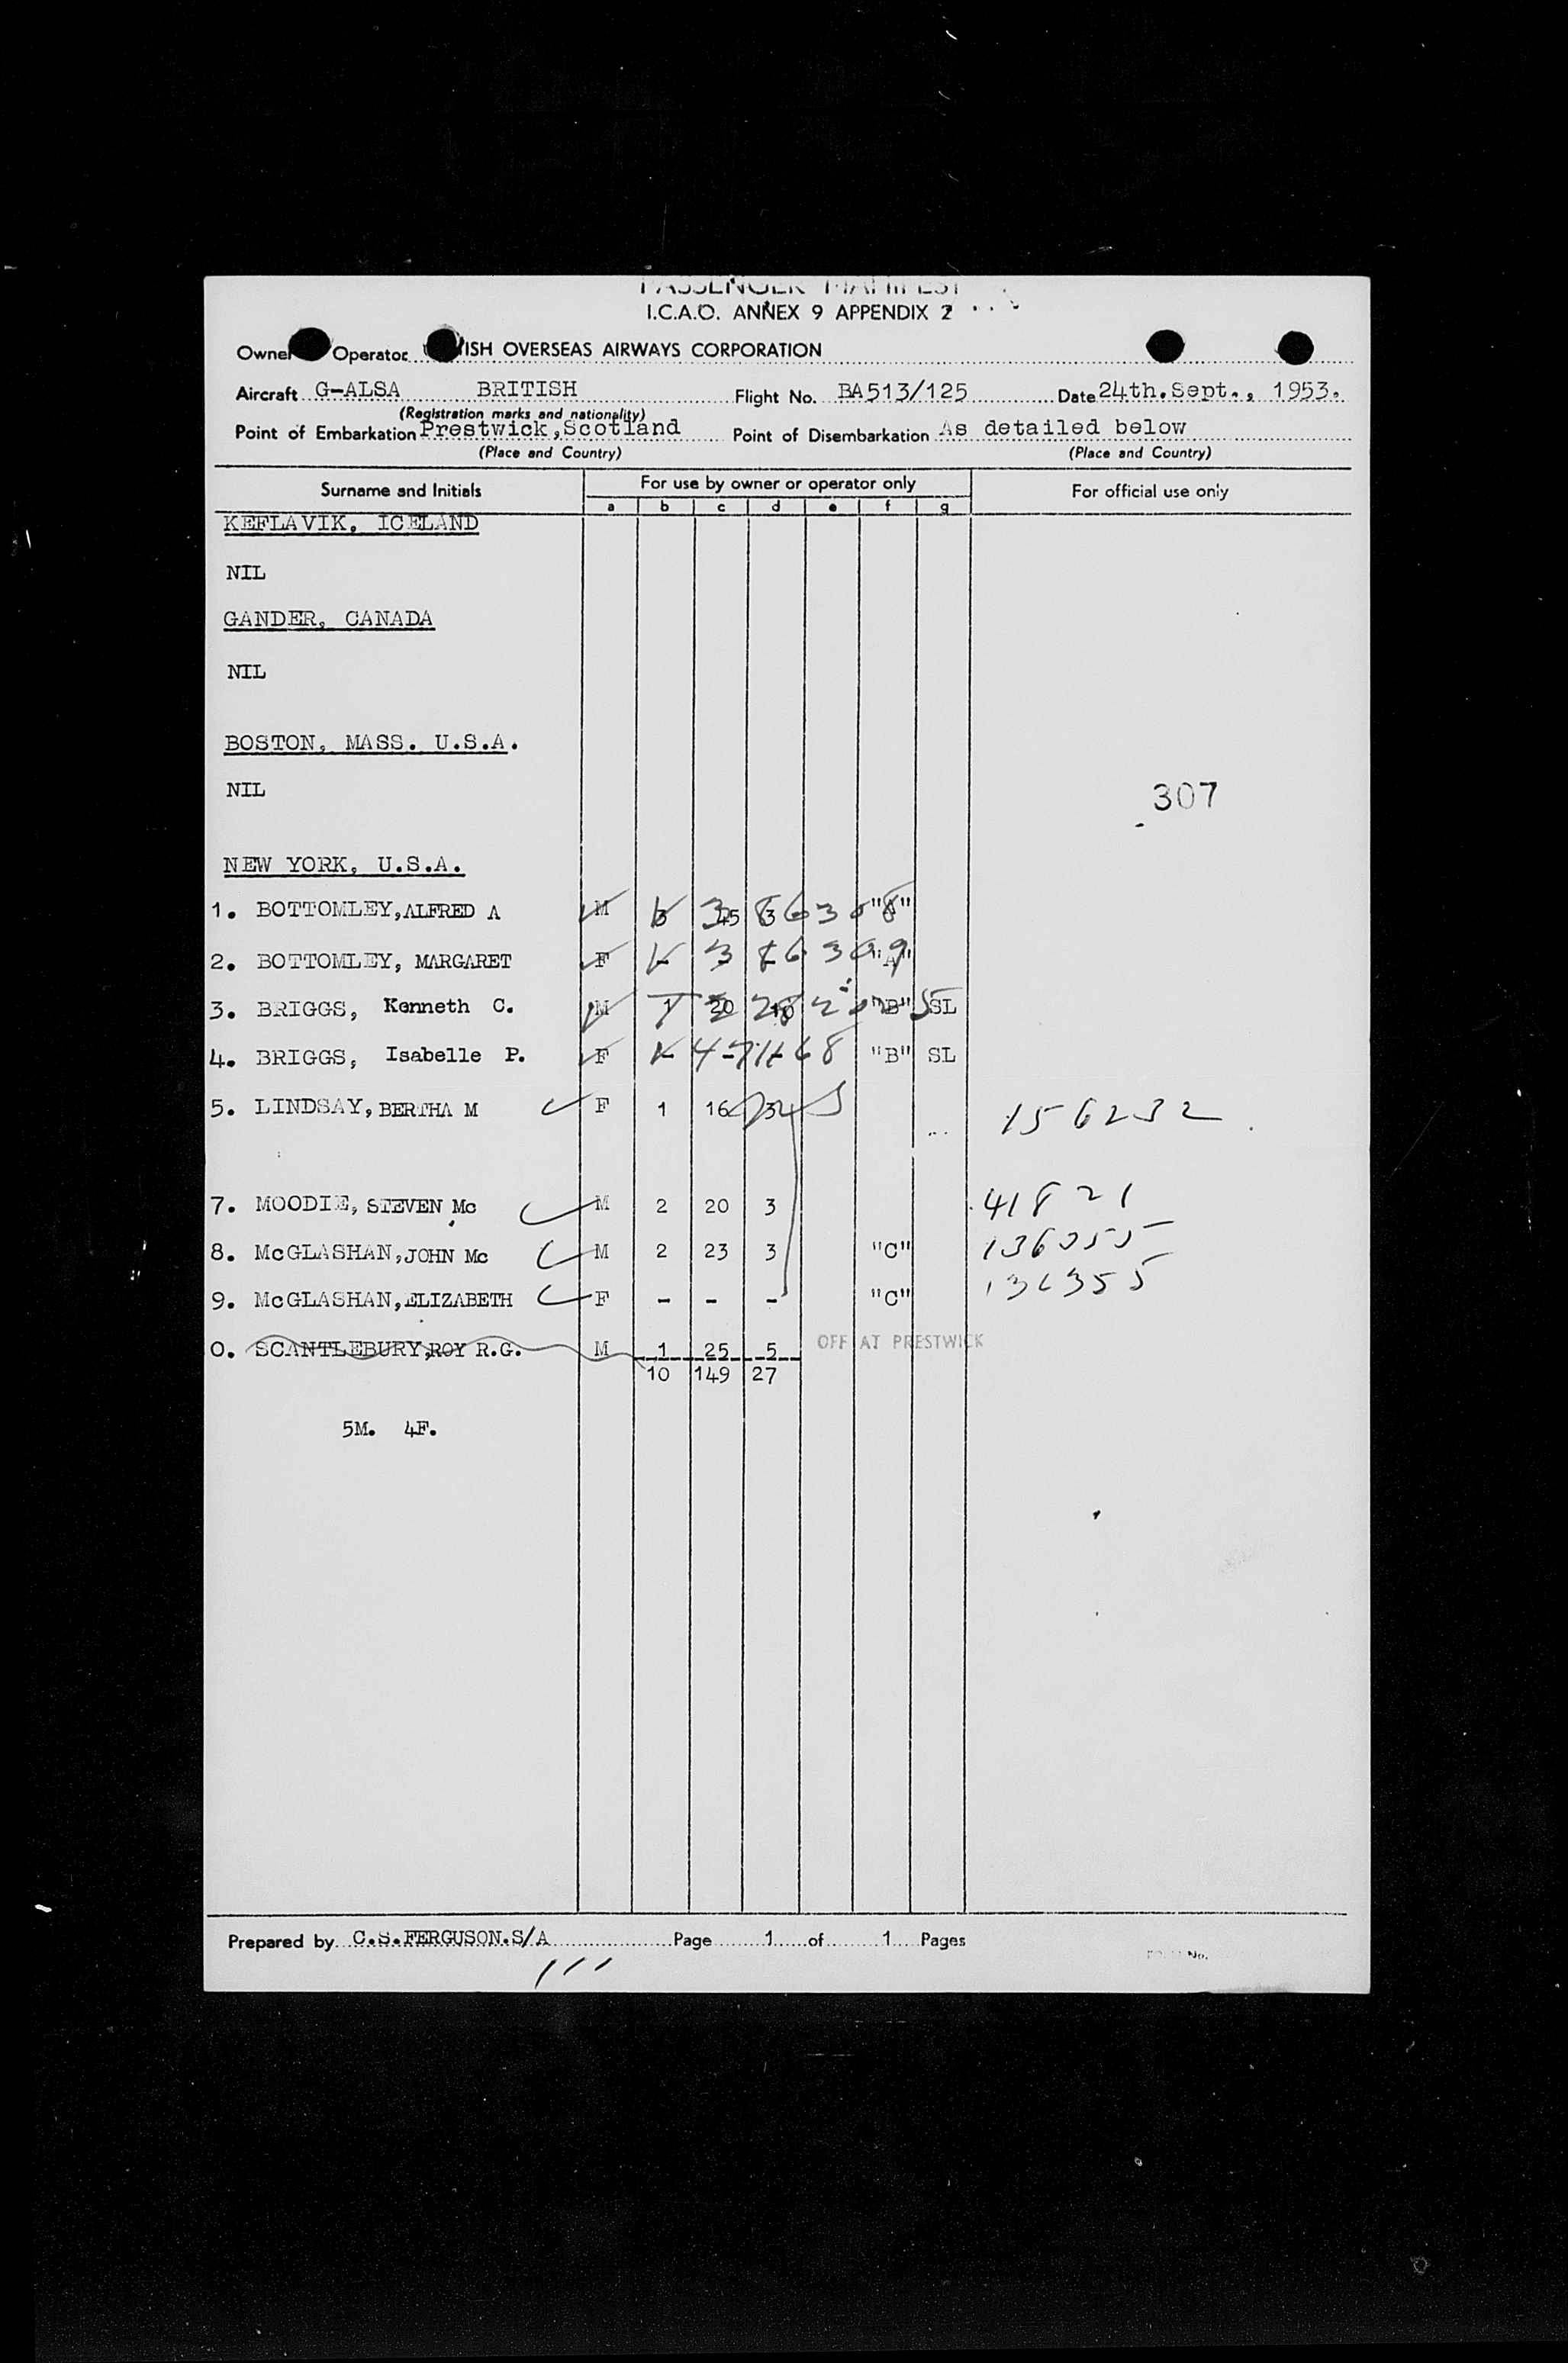 PASSENGER MANIFEST
I.C.A.O. ANNEX 9 APPENDIX 2
Owner Operator ISH OVERSEAS AIRWAYS CORPORATION
Aircraft G-ALSA BRITISH Flight No. BA513/125 Date 24th. Sept., 1953.
(Registration marks and nationality)
Point of Embarkation Prestwick, Scotland Point of Disembarkation As detailed below
(Place and Country) (Place and Country)
Surname and Initials For use by owner or operator only For official use only
a b c d e f g
KEFLAVIK, ICELAND
NIL
GANDER, CANADA
NIL
BOSTON, MASS. U.S.A.
NIL
307
NEW YORK, U.S.A.
1. BOTTOMLEY, ALFRED A M 3 45 3
2. BOTTOMLEY, MARGARET F - - - "A"
3. BRIGGS, Kenneth C. M 1 20 "B" SL
4. BRIGGS, Isabelle P. F - - - "B" SL
5. LINDSAY, BERTHA M F 1 16 3 156232
7. MOODIE, STEVEN Mc M 2 20 3 41821
8. McGLASHAN, JOHN Mc M 2 23 3 "C"
9. McGLASHAN, ELIZABETH F - - - "C" 136355
0. SCANTLEBURY, ROY R.G. M 1 25 5 OFF AT PRESTWICK
10 149 27
5M. 4F.
Prepared by C.S.FERGUSON.S/A Page 1 of 1 Pages
111